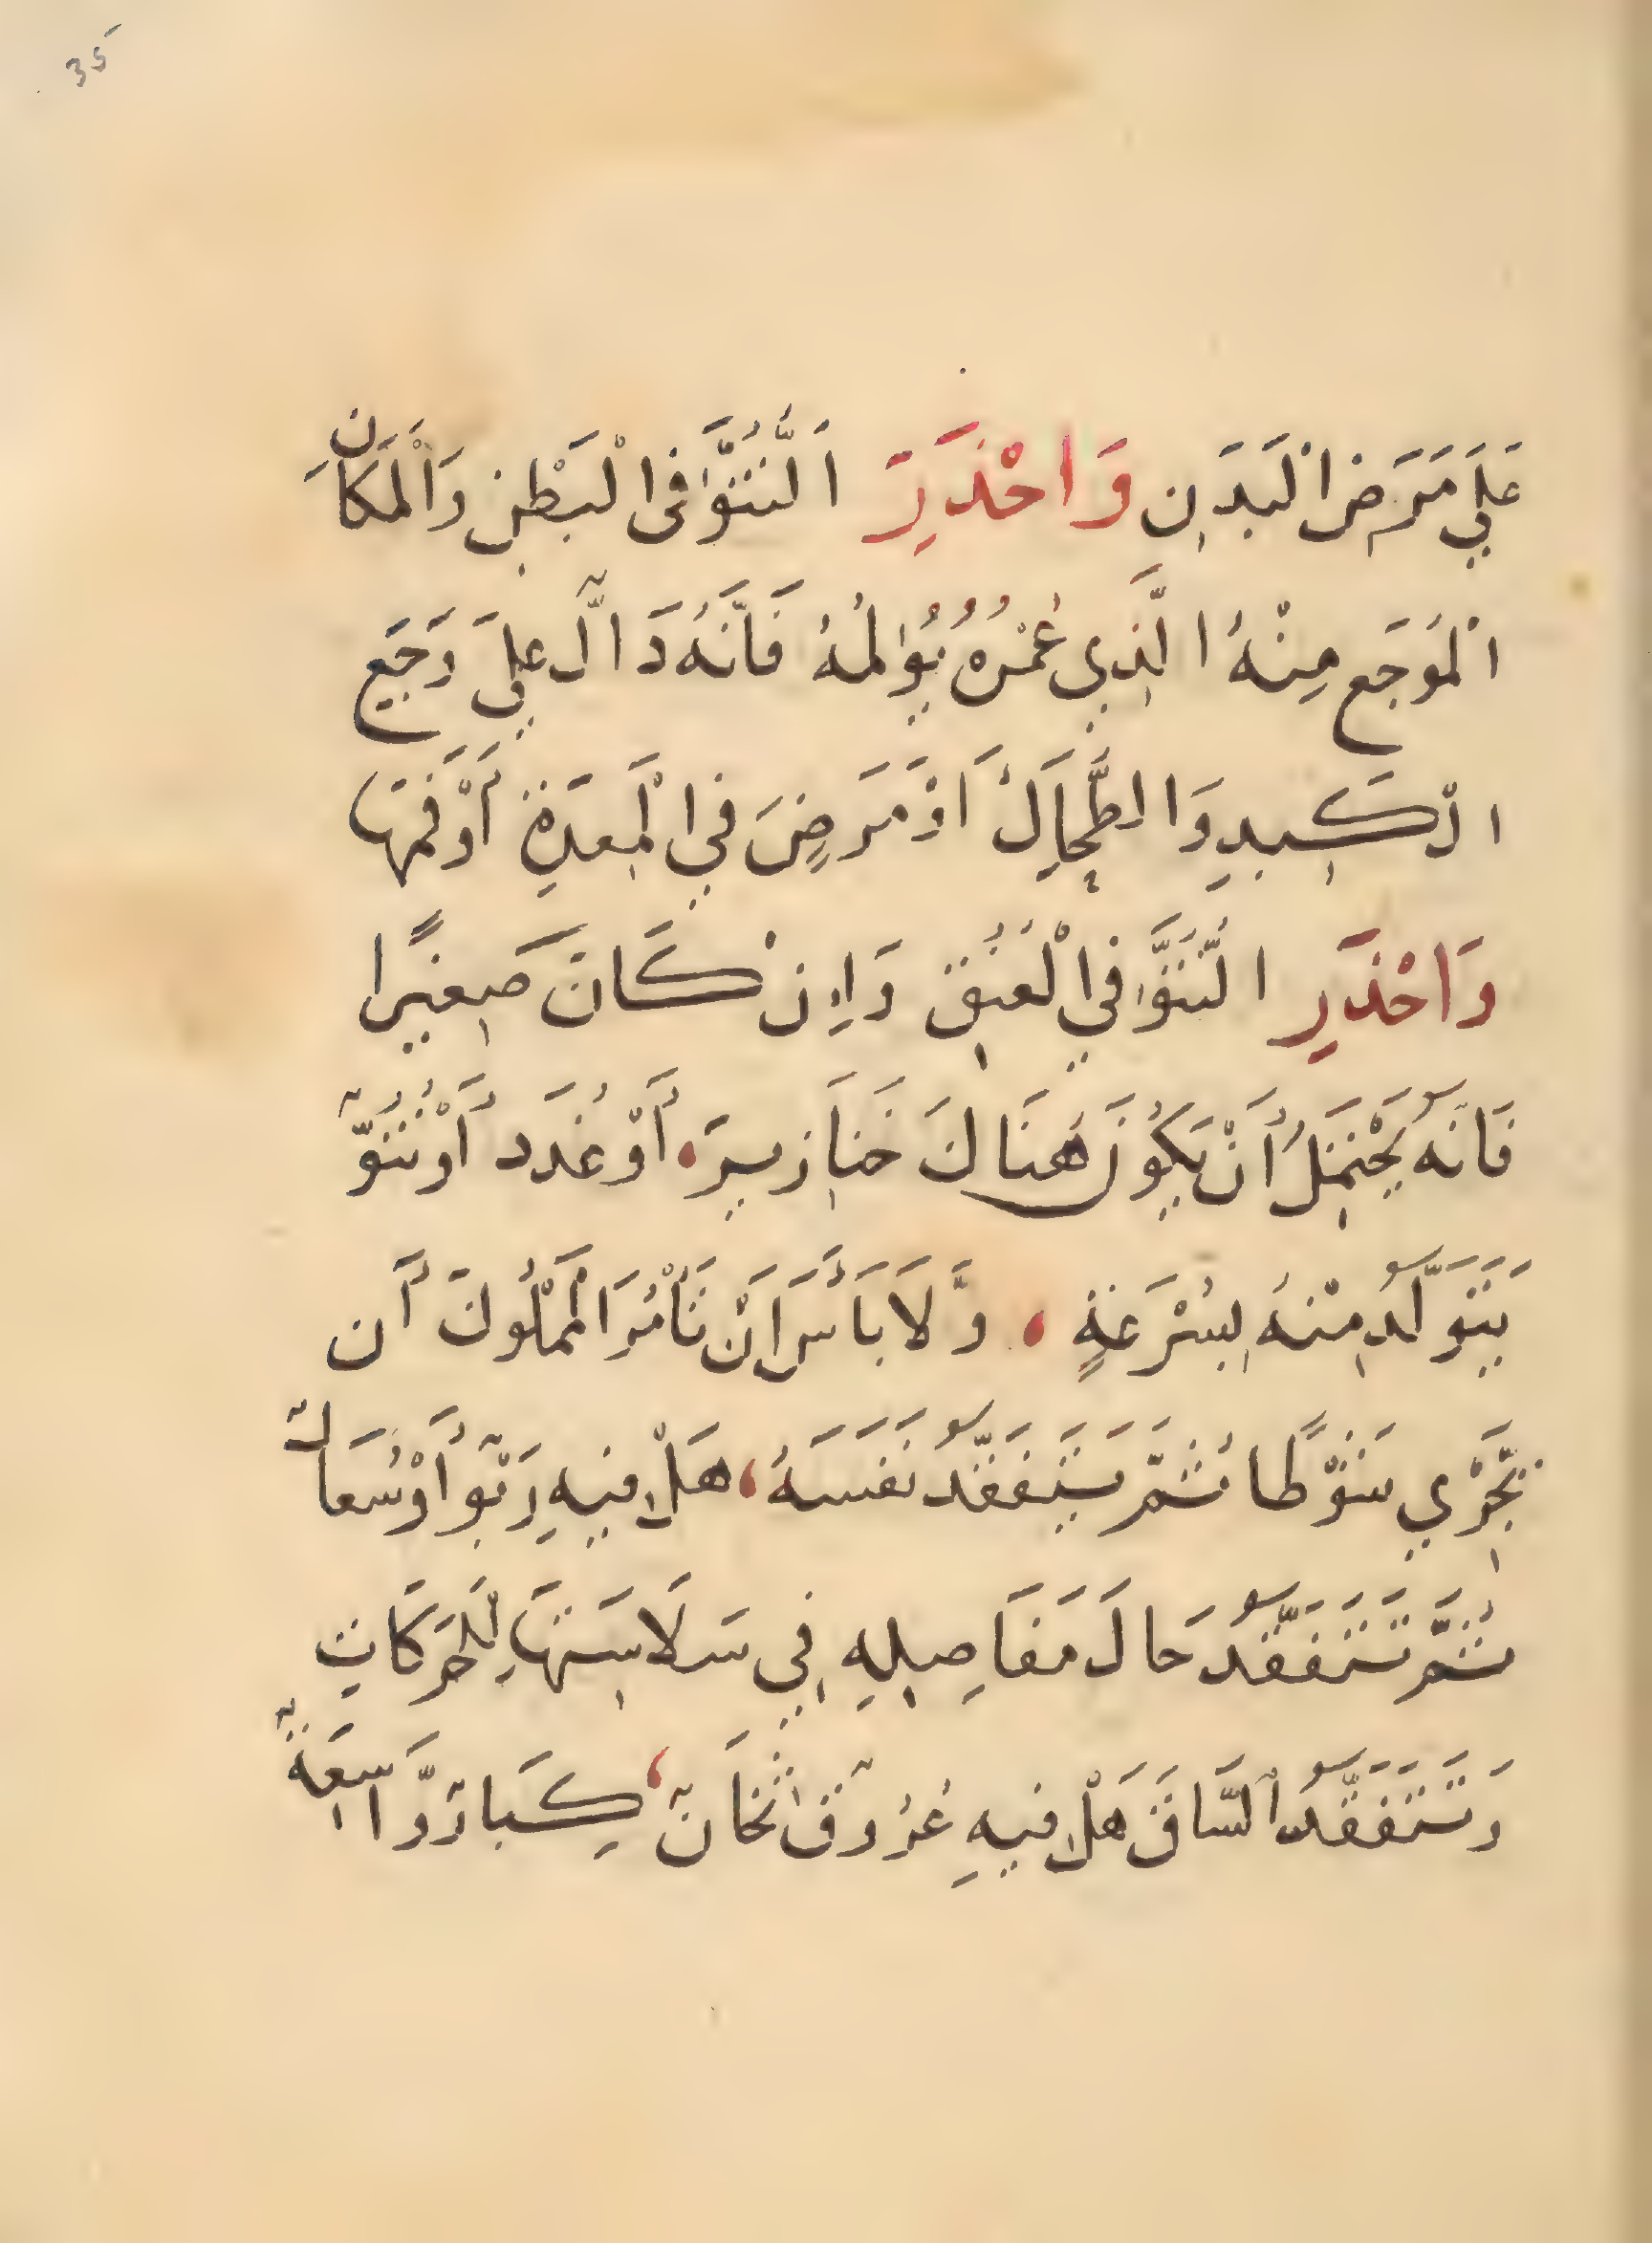 35
عَلَي مَرَضِ الْبَدَنِ وَاحْذَرِ اَلنُّتُوَّ فِى الْبَطْنِ وَالْمَكَانَ
الْمُوجَعِ مِنْهُ الَّذِي غَمْزُهُ يُؤلمُهُ فَاَنَّهُ دَالٌّ عَلَي وَجَعِ
الْكَبِدِ وَالطَّحِالِ اَوْ مَرَضٍ فِي الْمِعدَةِ أَوْ فَمِهَا
وَاحْذَرِ النُّتُوَّ فِي الْعُنُقِ وَاِنْ كَانَ صَغِيرًا
فَانَهُ يَحْتَمِلُ أَنْ يَكُونَ هُنَاكَ خَنَازِيرَ أَوْ غُدَد أَوْ نُتُوّ
يَتَوَلَّدُ مِنْهُ بِسُرْعَةٍ وَّلَا بَأسَ اَنْ تَأْمُرَ المَمْلُوكَ أَن
يَّجْرِي شَوْطًا ثُمَّ يَتَفَقَّد نَفَسَهُ هَلْ فِيهِ رَبْو أَوْ سُعَالٌ
ثُمَّ تَتَفَقَّدُ حَالَ مَفَاصِلِهِ فِي سَلَاسَتِهَا لِلْحَرَكَاتِ
وَتَتَفَقَّدُ السَّاقَ هَلْ فِيهِ عُرُوقٌ ثَخَانٌ كِبَارٌ وَّاسِعَةٌ